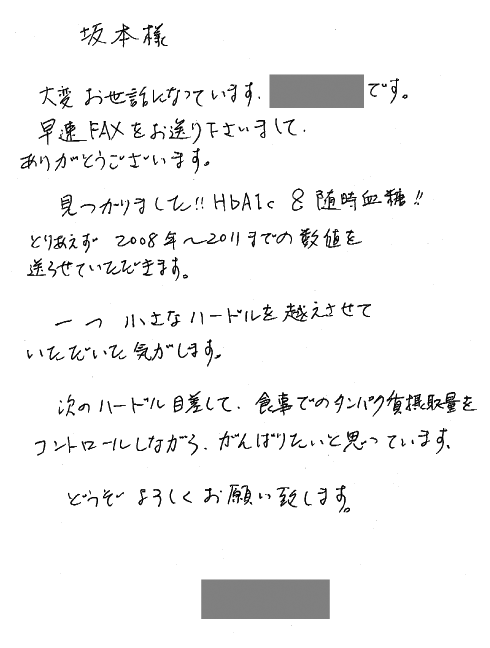 坂本様
大変お世話になっています. です。
早速FAXをお送り下さいまして.
ありがとうございます。
見つかりました!! HbA1c & 随時血糖!!
とりあえず 2008年〜2011までの数値を
送らせていただきます。
一つ 小さなハードルを越えさせて
いただいた気がします。
次のハードル目差して、食事でのタンパク質摂取量を
コントロールしながら、がんばりたいと思っています、
どうぞよろしくお願い致します。